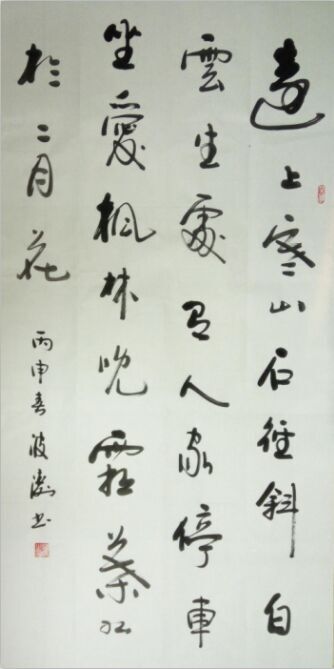 遠上寒山石徑斜白
雲生處有人家停車
坐愛楓林晚霜葉紅
於二月花
丙申春波濤书